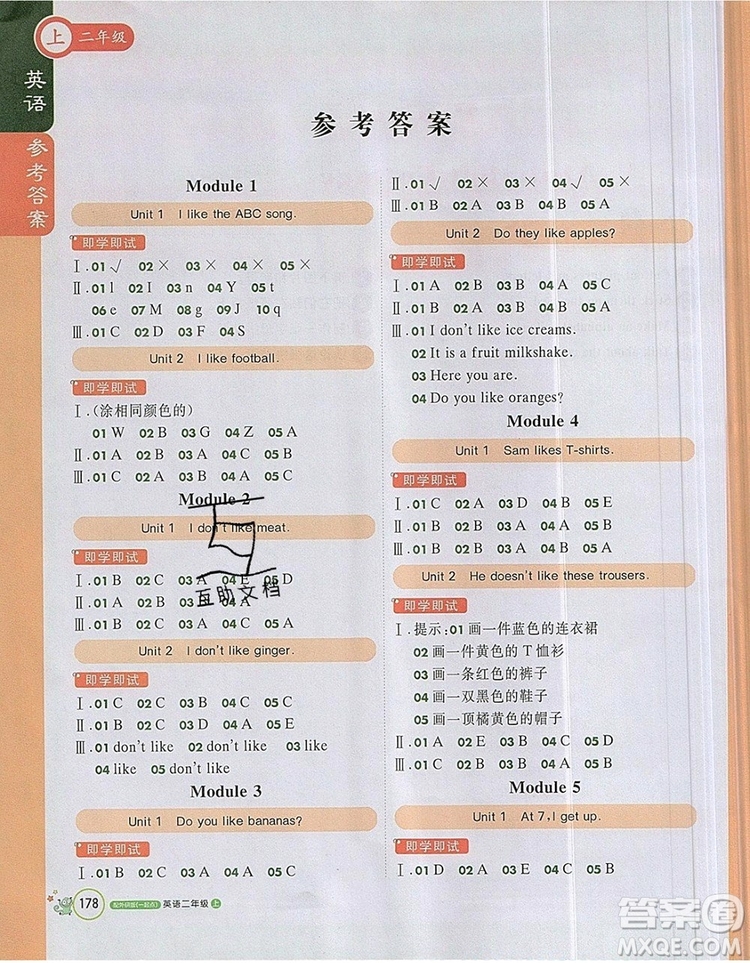 上 二年级
英语
参考答案
参考答案
Module 1
Unit 1 I like the ABC song.
即学即试
Ⅰ.01 √ 02 × 03 × 04 × 05 ×
Ⅱ.01 l 02 i 03 n 04 Y 05 t
06 e 07 M 08 g 09 J 10 q
Ⅲ.01 C 02 D 03 F 04 S
Unit 2 I like football.
即学即试
Ⅰ.(涂相同颜色的)
01 W 02 B 03 G 04 Z 05 A
Ⅱ.01 A 02 B 03 A 04 B 05 A
Ⅲ.01 C 02 A 03 B 04 B 05 A
Module 2
Unit 1 I don't like meat.
即学即试
Ⅰ.01 B 02 C 03 A 04 E 05 D
Ⅱ.01 A 02 B 04 A 05 A
Ⅲ.01 B 02 C 03 A 04 B 05 A
Unit 2 I don't like ginger.
即学即试
Ⅰ.01 C 02 C 03 B 04 C 05 A
Ⅱ.01 B 02 C 03 D 04 A 05 E
Ⅲ.01 don't like 02 like 03 don't like
04 like 05 don't like
Module 3
Unit 1 Do you like bananas?
即学即试
Ⅰ.01 B 02 C 03 A 04 A 05 C
178 配外研版(一起点) 英语二年级 上
Ⅱ.01 √ 02 × 03 × 04 √ 05 ×
Ⅲ.01 B 02 A 03 A 04 B 05 A
Unit 2 Do they like apples?
即学即试
Ⅰ.01 A 02 C 03 B 04 A 05 C
Ⅱ.01 A 02 B 03 B 04 B 05 A
Ⅲ.01 I don't like ice creams.
02 It is a fruit milkshake.
03 Here you are.
04 Do you like oranges?
Module 4
Unit 1 Sam likes T-shirts.
即学即试
Ⅰ.01 C 02 A 03 D 04 B 05 E
Ⅱ.01 B 02 A 03 B 04 A 05 B
Ⅲ.01 A 02 B 03 B 04 A 05 A
Unit 2 He doesn't like these trousers.
即学即试
Ⅰ.提示:01 画一件蓝色的连衣裙
02 画一件黄色的T恤衫
03 画一条红色的裤子
04 画一双黑色的鞋子
05 画一顶橘黄色的帽子
Ⅱ.01 A 02 E 03 B 04 C 05 D
Ⅲ.01 C 02 B 03 B 04 A 05 A
Module 5
Unit 1 At 7, I get up.
即学即试
Ⅰ.01 C 02 A 03 B 04 A 05 B
互助文档
答案圈
MXQE.COM